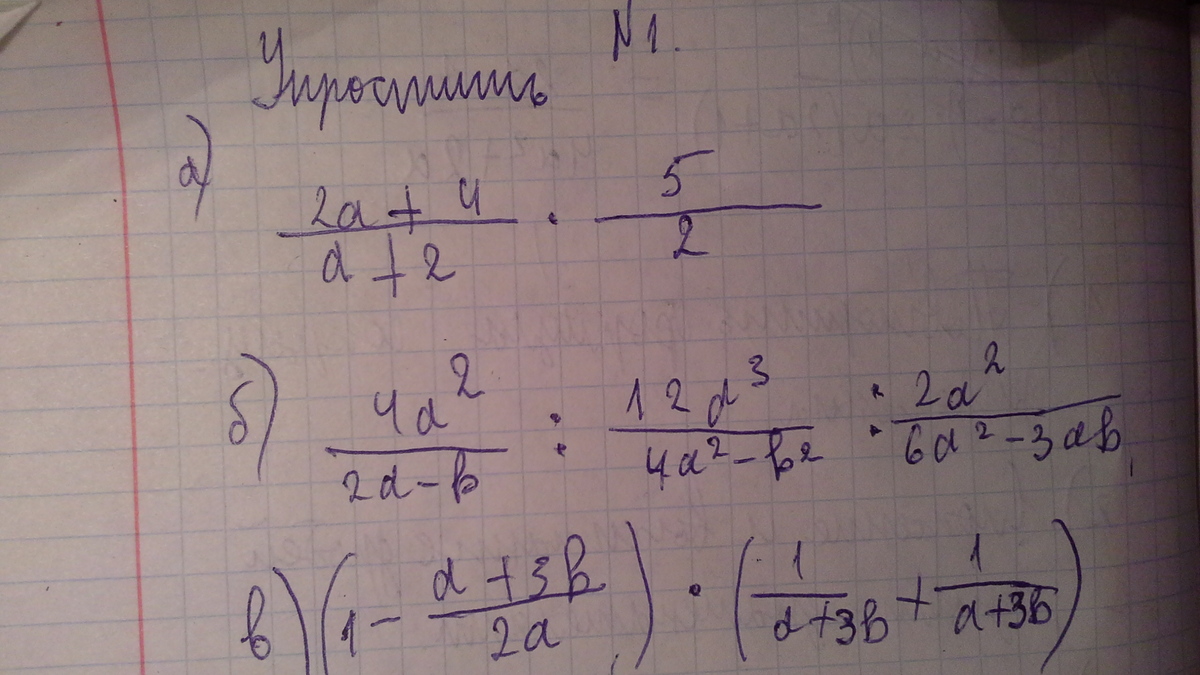 Упростить №1.
а) (2a + 4)/(a + 2) · 5/2
б) 4a²/(2a - b) : 12a³/(4a² - b²) : 2a²/(6a² - 3ab),
в) (1 - (a + 3b)/(2a)) · (1/(a + 3b) + 1/(a + 3b))